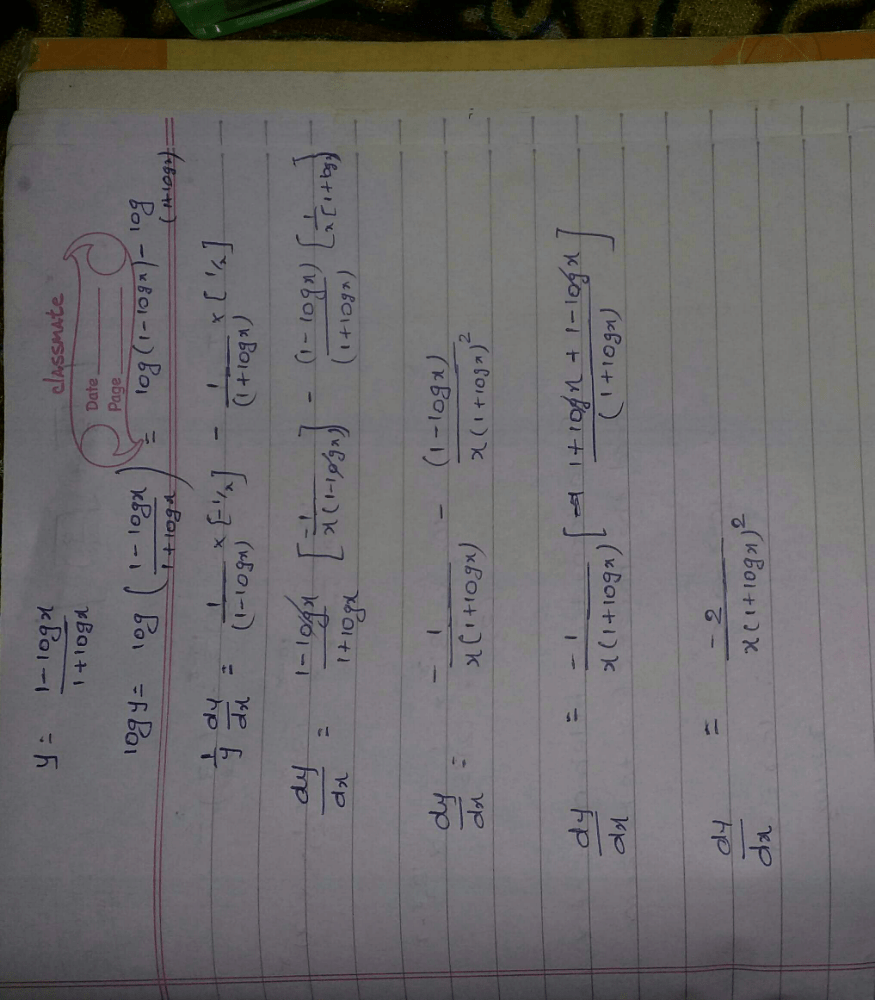 classmate
Date
Page
y = 1-logx / 1+logx
log y = log ( 1-logx / 1+logx ) = log (1-logx) - log (1+logx)
1/y dy/dx = 1/(1-logx) × [-1/x] - 1/(1+logx) × [1/x]
dy/dx = 1-logx / 1+logx [ -1 / x(1-logx) ] - (1-logx)/(1+logx) [ 1 / x[1+logx) ]
dy/dx = - 1 / x(1+logx) - (1-logx) / x(1+logx)²
dy/dx = -1 / x(1+logx) [ 1+logx + 1-logx / (1+logx) ]
dy/dx = -2 / x(1+logx)²